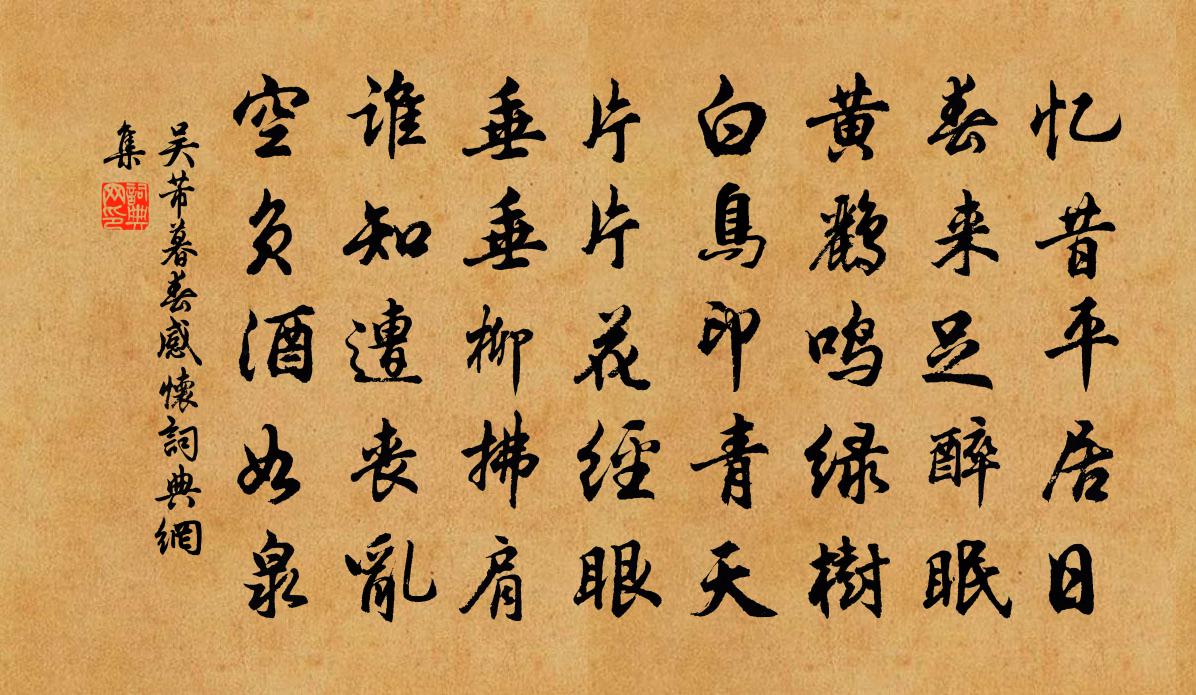 忆昔平居日
春来足醉眠
黄鹂鸣绿樹
白鳥印青天
片片花經眼
垂垂柳拂肩
谁知遭丧亂
空负酒如泉
吴芾暮春感懷詞典網
集
詞典
网印